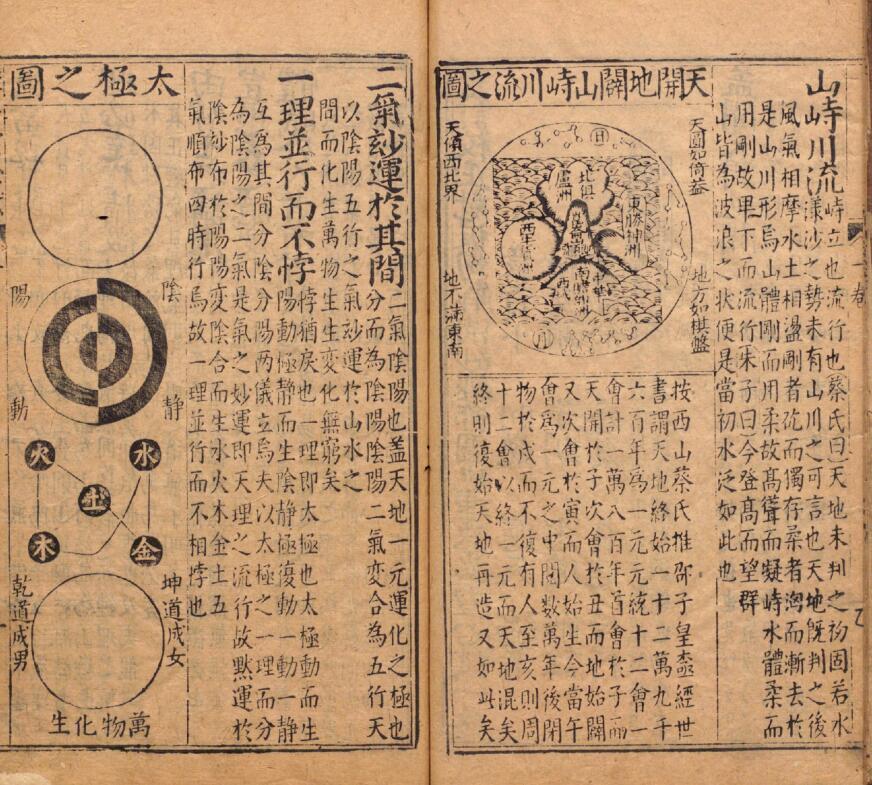 山峙川流
峙立也流行也蔡氏曰天地未判之初固若水
漾沙之勢未有山川之可言也天地旣判之後
風氣相摩水土相盪剛者屹而獨存柔者淘而漸去於
是山川形焉山體剛而用柔故髙聳而凝峙水體柔而
用剛故卑下而流行朱子曰今登髙而望群
山皆為波浪之狀便是當初水泛如此也
天開地闢山峙川流之圖
天圓如倚葢
地方如棋盤
日
東勝神洲
北俱盧洲
南贍部洲
西牛賀洲
西戎
月
天傾西北界
地不滿東南
按西山蔡氏推邵子皇極經世
書謂天地終始一十二萬九千
六百年爲一元元統十二會一
會計一萬八百年首會於子而
天開於子次會於丑而地始闢
又次會於寅而人始生今當午
會爲一元之中閱數萬年後閉
物於戌而不復有人至亥則周
十二會以終一元而天地混矣
終則復始天地再造又如此矣
二氣玅運於其間
二氣陰陽也盖天地一元運化之極也
分而為陰陽陰陽二氣変合為五行天
以陰陽五行之氣玅運於山水之
間而化生萬物生生変化無窮矣
一理並行而不悖
悖猶戾也一理即太極也太極動而生
陽動極靜而生陰靜極復動一動一靜
互爲其間分陰分陽兩儀立焉夫以太極之一理而分
為陰陽之二氣是氣之妙運即天理之流行故黙運於
陰玅布於陽陽変陰合而生水火木金土五
氣順布四時行焉故一理並行而不相悖也
太極之圖
陰靜
陽動
水
火
土
金
木
坤道成女
乾道成男
萬物化生